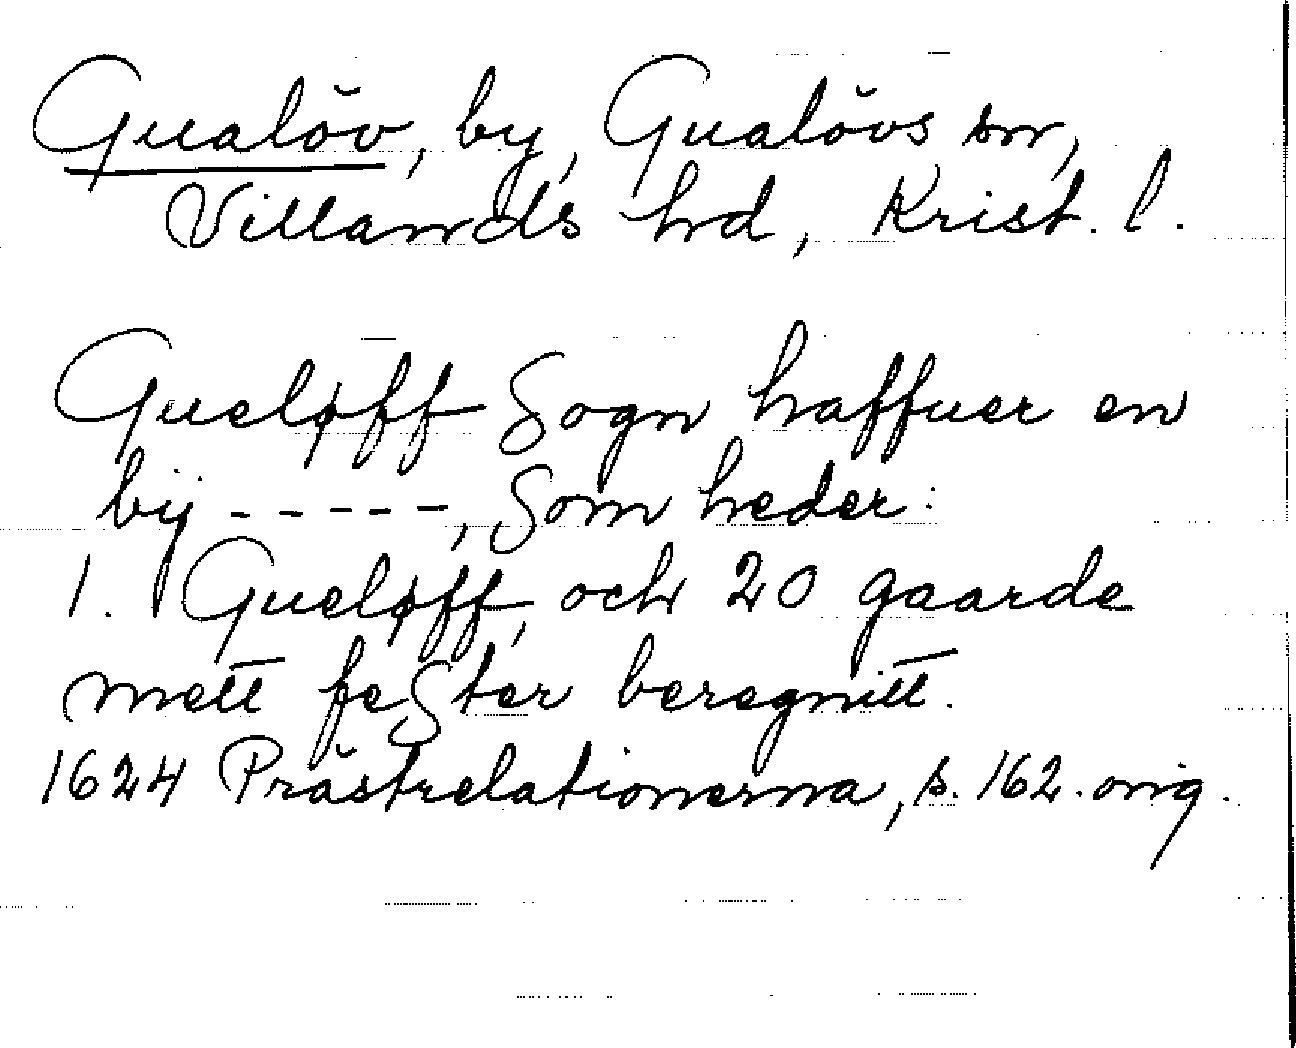 Gualöv, by, Gualövs sn,
Villands hd, Krist. l.
Gueløff Sogn haffuer en
bij - - - - -, Som heder:
1. Gueløff, och 20 gaarde
mett feSter beregnitt.
1624 Prästrelationerna, s. 162. orig.